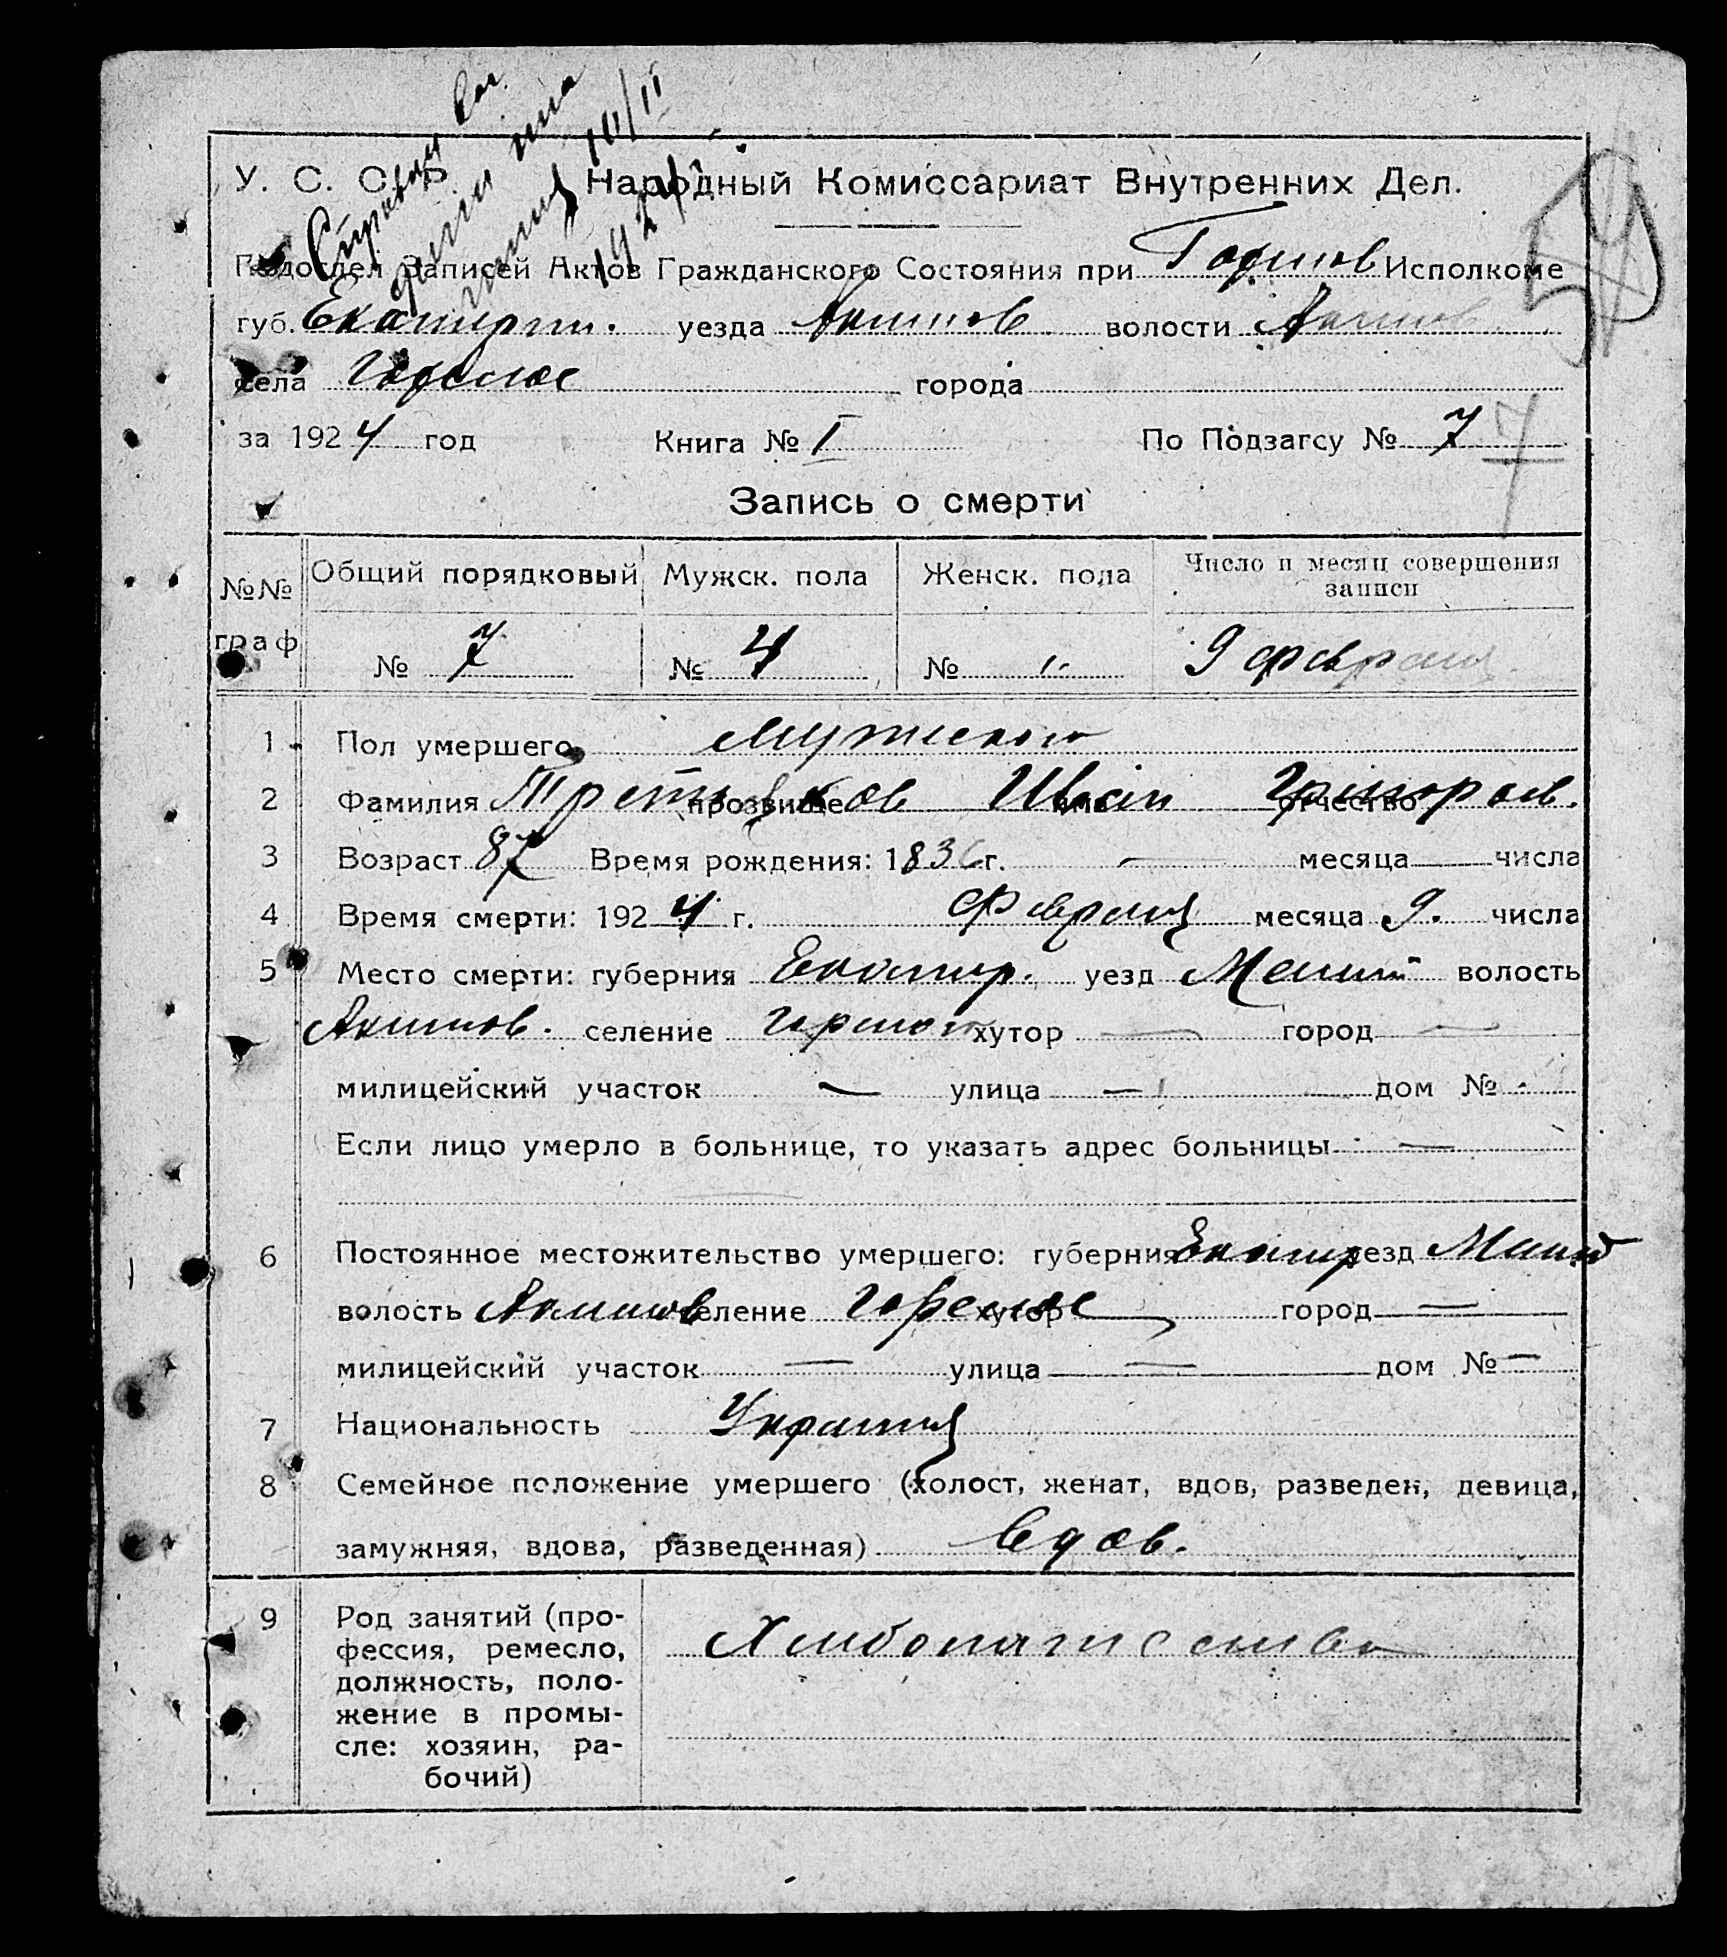 У. С. С. Р. Народный Комиссариат Внутренних Дел.
Подотдел Записей Актов Гражданского Состояния при Исполкоме
губ. Екатерин. уезда волости Акимов
села Горелое города
за 1924 год Книга № I По Подзагсу № 7
Запись о смерти
№№ граф Общий порядковый Мужск. пола Женск. пола Число и месяц совершения записи
№ 7 № 4 № " 9 февраля
1 Пол умершего мужского
2 Фамилия прозвище Третьяков имя Иван отчество Григоров.
3 Возраст 87 Время рождения: 1836 г. — месяца — числа
4 Время смерти: 1924 г. Февраля месяца 9. числа
5 Место смерти: губерния Екатер. уезд Мелит волость
Акимов. селение хутор — город —
милицейский участок — улица — дом № -
Если лицо умерло в больнице, то указать адрес больницы —
6 Постоянное местожительство умершего: губерния Екатер уезд Мелит
волость Акимов селение Горелое хутор — город —
милицейский участок — улица — дом № —
7 Национальность
8 Семейное положение умершего (холост, женат, вдов, разведен, девица,
замужняя, вдова, разведенная) вдов.
9 Род занятий (про-
фессия, ремесло,
должность, поло-
жение в промы-
сле: хозяин, ра-
бочий)